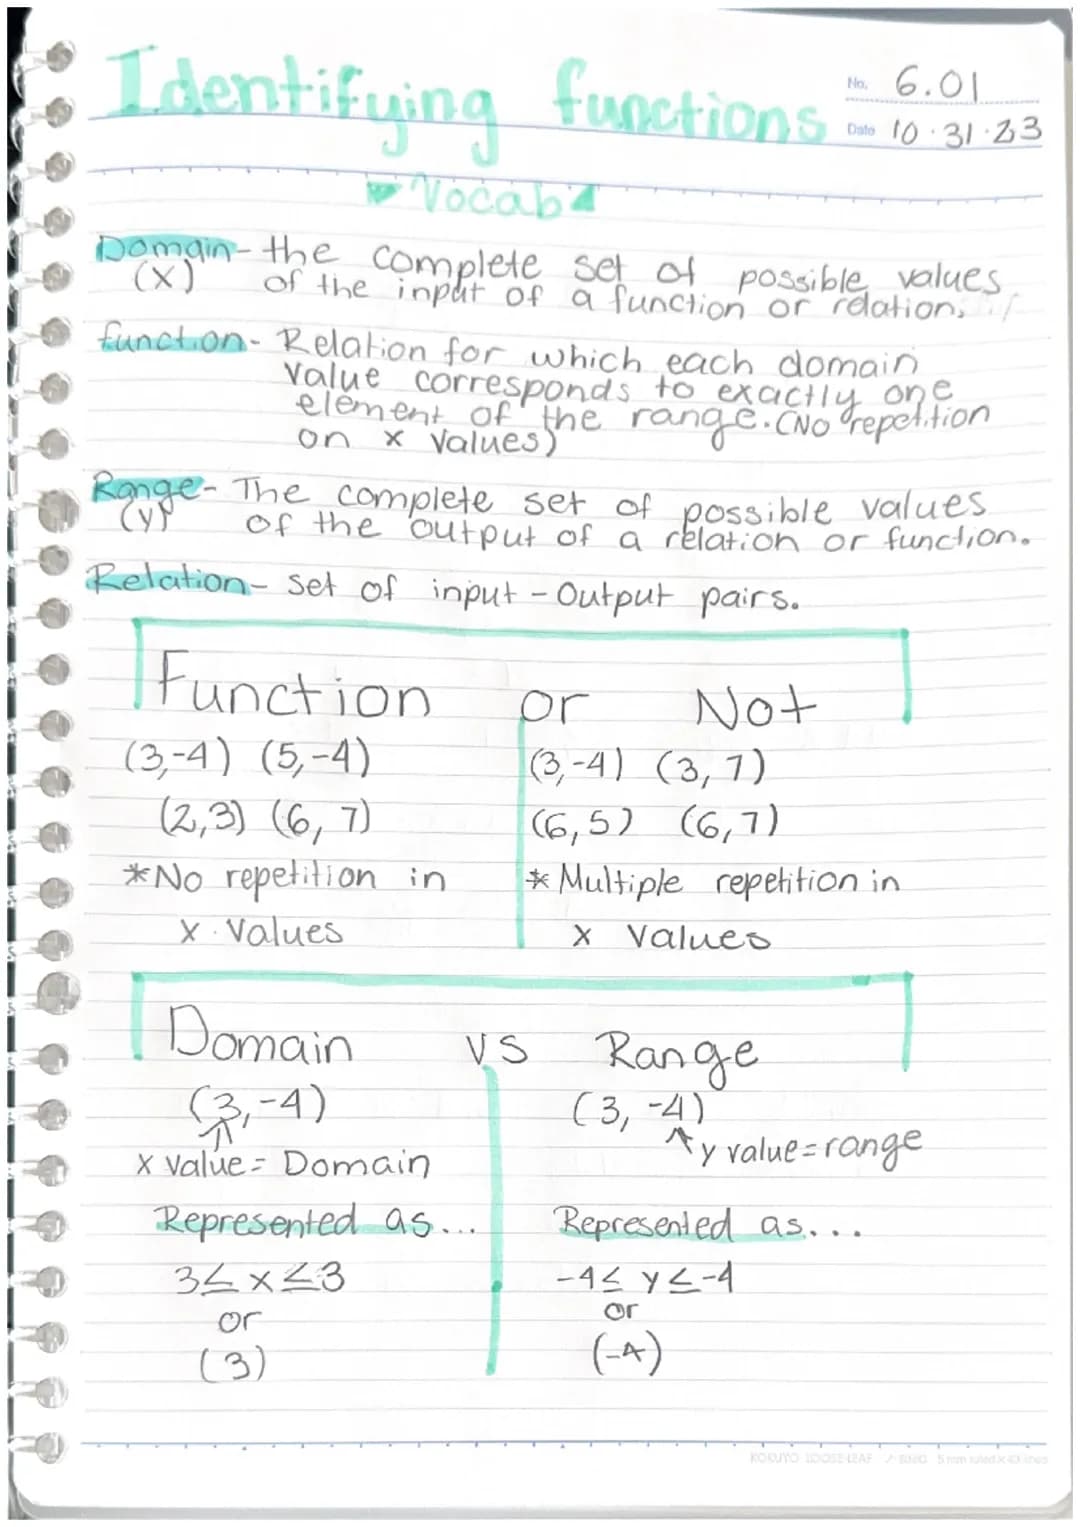 Identifying functions
No. 6.01
Date 10.31.23
Vocab
Domain- the complete set of possible values
(X) of the input of a function or relation.
function- Relation for which each domain
value corresponds to exactly one
element of the range. (No repetition
on x values)
Range- The complete set of possible values
(Y) of the output of a relation or function.
Relation- set of input - Output pairs.
Function or Not
(3,-4) (5,-4)
(2,3) (6, 7)
*No repetition in
x values
(3,-4) (3, 7)
(6,5) (6,7)
* Multiple repetition in
x values
Domain vs Range
(3,-4)
x value = Domain
Represented as...
3≤ x ≤3
or
(3)
(3, -4)
y value=range
Represented as...
-4≤ y ≤-4
or
(-4)
KOKUYO LOOSE-LEAF
5 mm ruled x